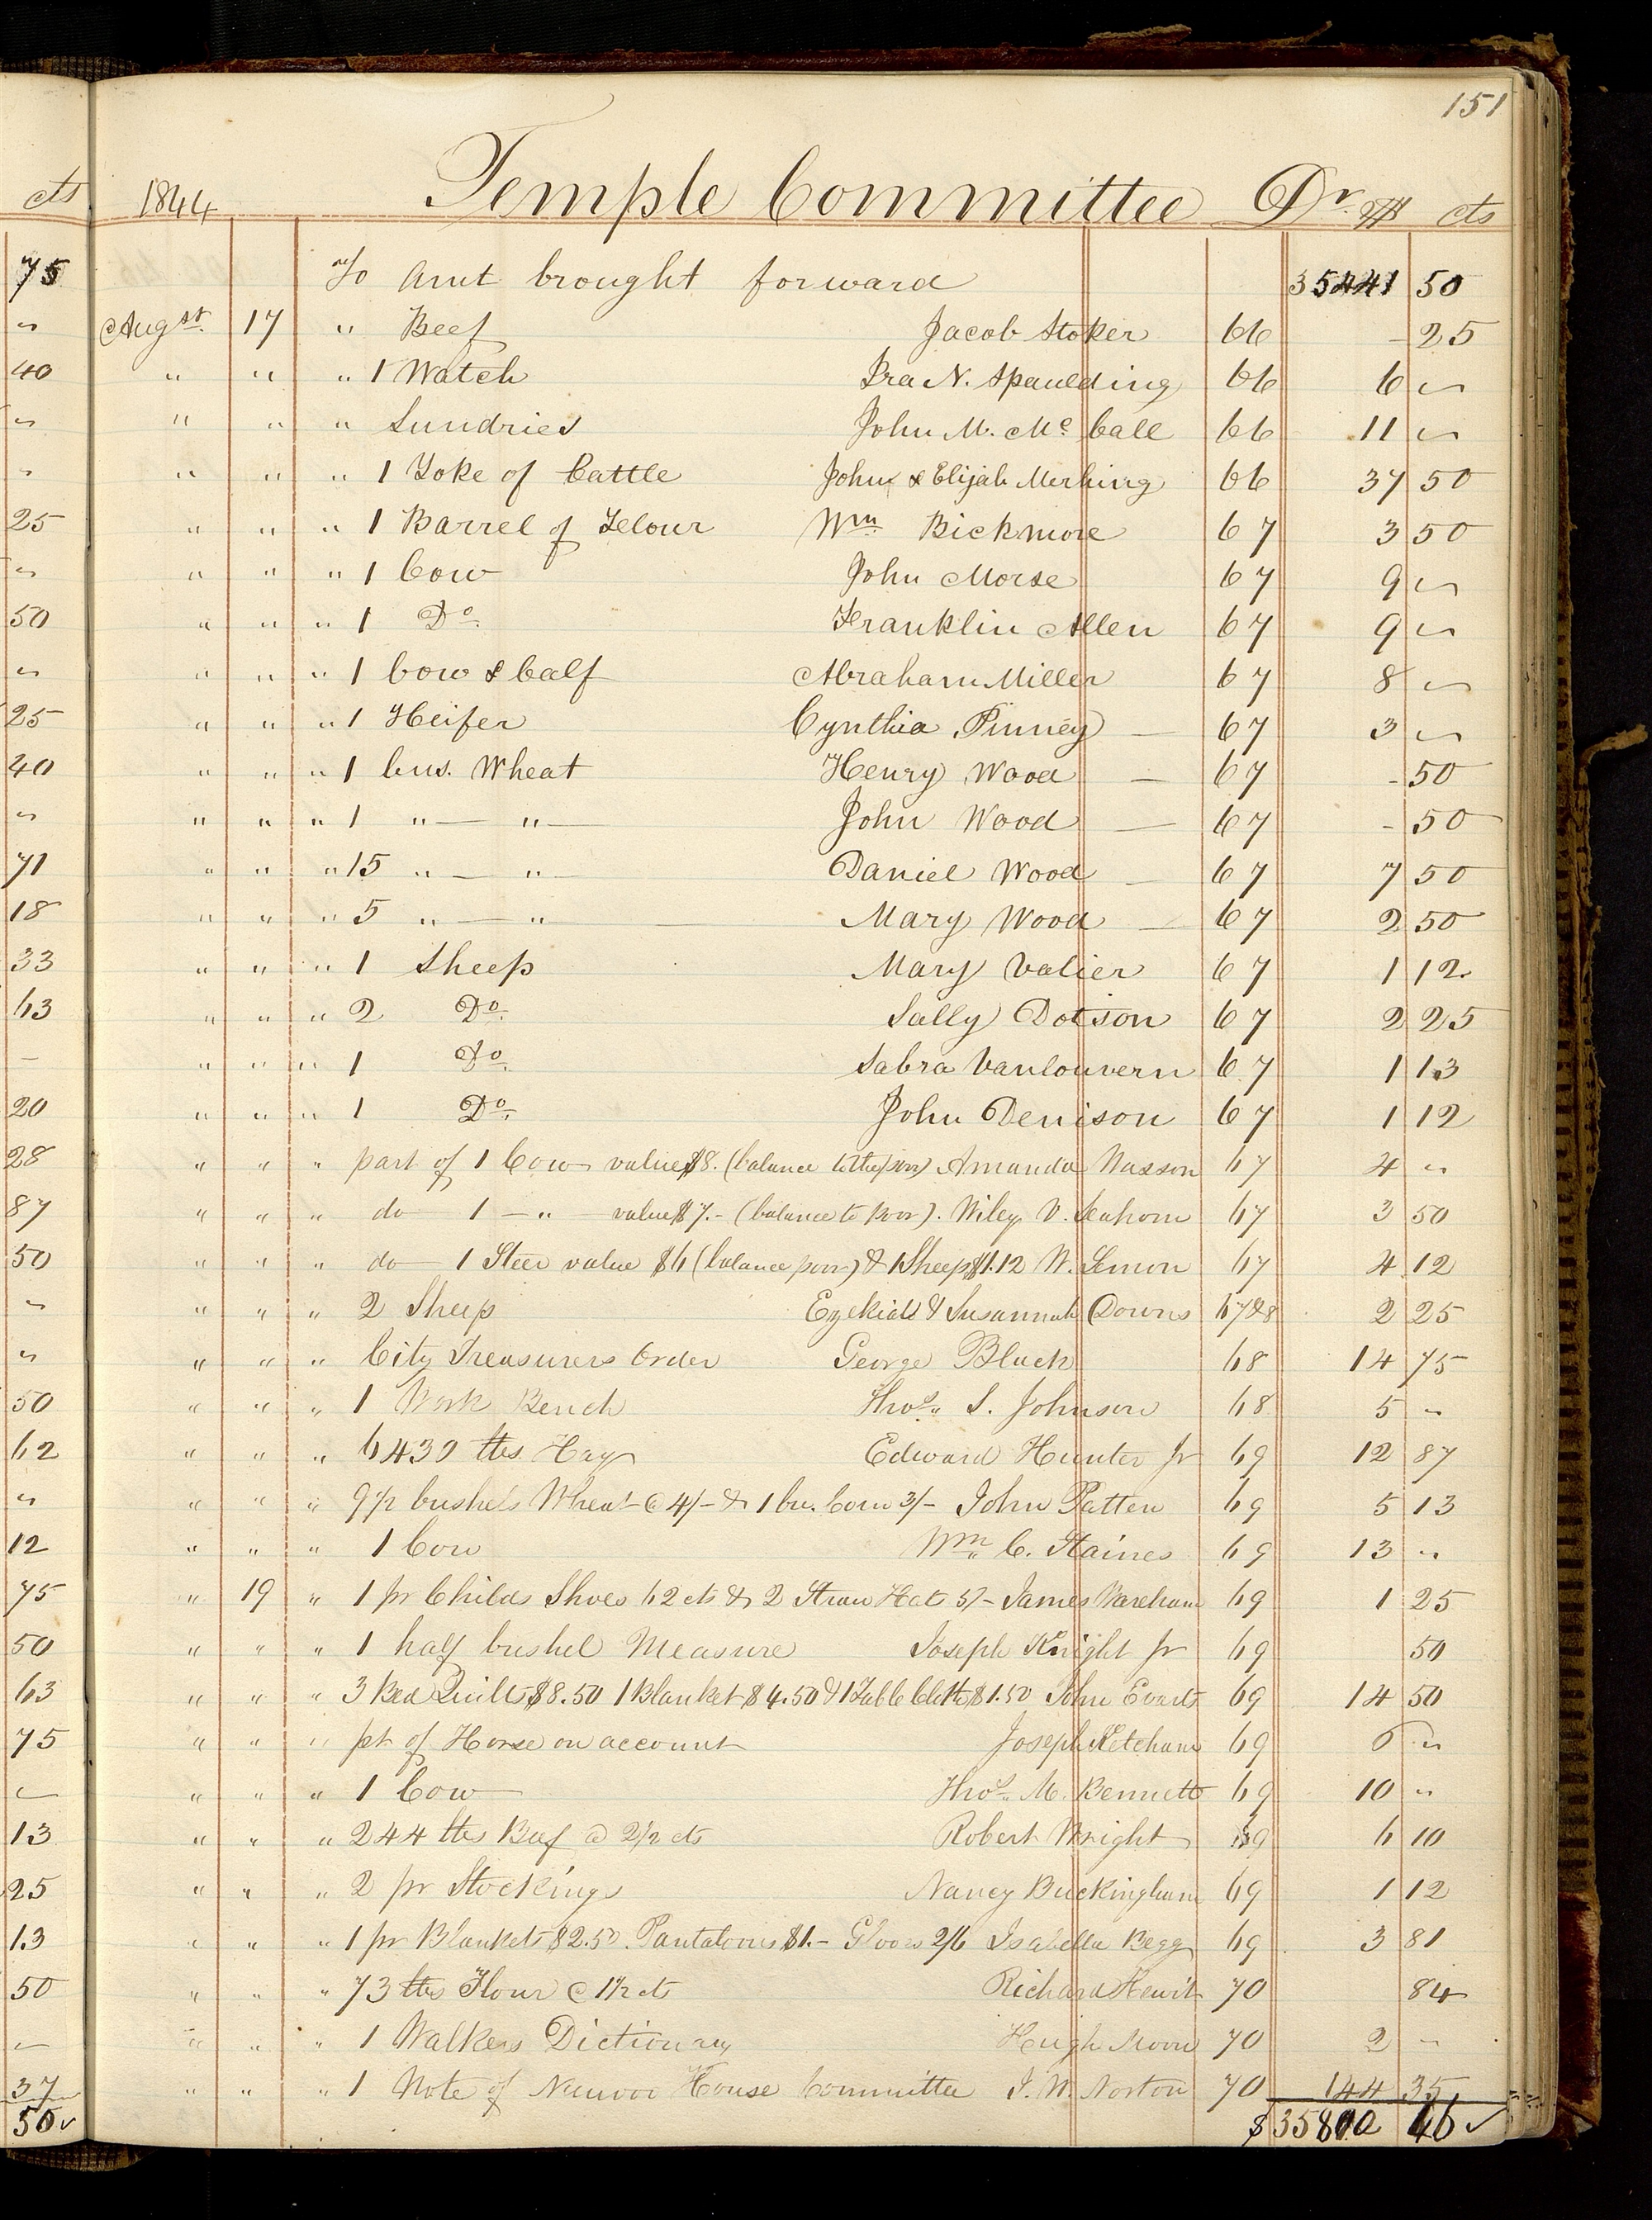 151
1844 Temple Committee Dr. $ cts
To Amt brought forward 35441 50
Augst. 17 " Beef Jacob Stoker 66 - 25
" " " 1 Watch Ira N. Spaulding 66 6 "
" " " Sundries John M. Mc Call 66 11 "
" " " 1 Yoke of Cattle John & Elijah Merhing 66 37 50
" " " 1 Barrel of Flour Wm Bickmore 67 3 50
" " " 1 Cow John Morse 67 9 "
" " " 1 Do. Franklin Allen 67 9 "
" " " 1 Cow & Calf Abraham Miller 67 8 "
" " " 1 Heifer Cynthia Pinney — 67 3 "
" " " 1 bus. Wheat Henry Wood — 67 - 50
" " " 1 " — " — John Wood — 67 - 50
" " " 15 " — " — Daniel Wood — 67 7 50
" " " 5 " — " — Mary Wood — 67 2 50
" " " 1 Sheep Mary Valier 67 1 12
" " " 2 Do. Sally Dotson 67 2 25
" " " 1 Do. Sabra Vanlouvern 67 1 13
" " " 1 Do. John Denison 67 1 12
" " " part of 1 Cow value $8. (balance to the poor) Amanda Wasson 67 4 "
" " " do — 1 — " — value $7.- (balance to poor). Wiley V. 67 3 50
" " " do — 1 Steer value $6 (balance poor) & 1 Sheep $1.12 W. Lemon 67 4 12
" " " 2 Sheep Ezekiel & Susannah Downs 67&8 2 25
" " " City Treasurers Order George Black 68 14 75
" " " 1 Work Bench Thos. S. Johnson 68 5 "
" " " 6430 lbs Hay Edward Hunter Jr 69 12 87
" " " 9 1/2 bushels Wheat @ 4/- & 1 bu. Corn 3/- John Patten 69 5 13
" " " 1 Cow Wm C. Haines 69 13 "
" 19 " 1 pr Childs Shoes 62 cts & 2 Straw Hats 5/- James Wareham 69 1 25
" " " 1 half bushel Measure Joseph Knight Jr 69 50
" " " 3 Bed Quilts $8.50 1 Blanket $4.50 & 1 Table Cloth $1.50 John Everts 69 14 50
" " " pt of Horse on account Joseph Ketcham 69 6 "
" " " 1 Cow Thos. M. Bennett 69 10 "
" " " 244 lbs Beef @ 2 1/2 cts Robert Wright 69 6 10
" " " 2 pr Stockings Nancy Buckingham 69 1 12
" " " 1 pr Blankets $2.50 Pantaloons $1.- Gloves 2/6 Isabella Begg 69 3 81
" " " 73 lbs Flour @ 1 1/2 cts Richard Hewit 70 84
" " " 1 Walkers Dictionary Hugh Moon 70 2 -
" " " 1 Note of Nauvoo House Committee J. W. Norton 70 144 35
$35802 46
cts
75
"
40
"
"
25
"
50
"
25
40
"
71
18
33
63
—
20
28
87
50
"
"
50
62
"
12
75
50
63
75
—
13
25
13
50
—
37
50